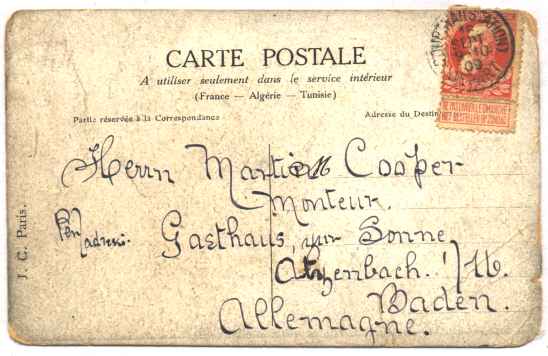 CARTE POSTALE
A utiliser seulement dans le service intérieur
(France — Algérie — Tunisie)
Partie réservée à la Correspondance
Adresse du Destin
NE PAS LIVRER LE DIMANCHE
NIET BESTELLEN OP ZONDAG
J. C. Paris.
Herrn Martin Cooper
Monteur.
Gasthaus, zur Sonne
Atzenbach. i/W.
Baden.
Allemagne.